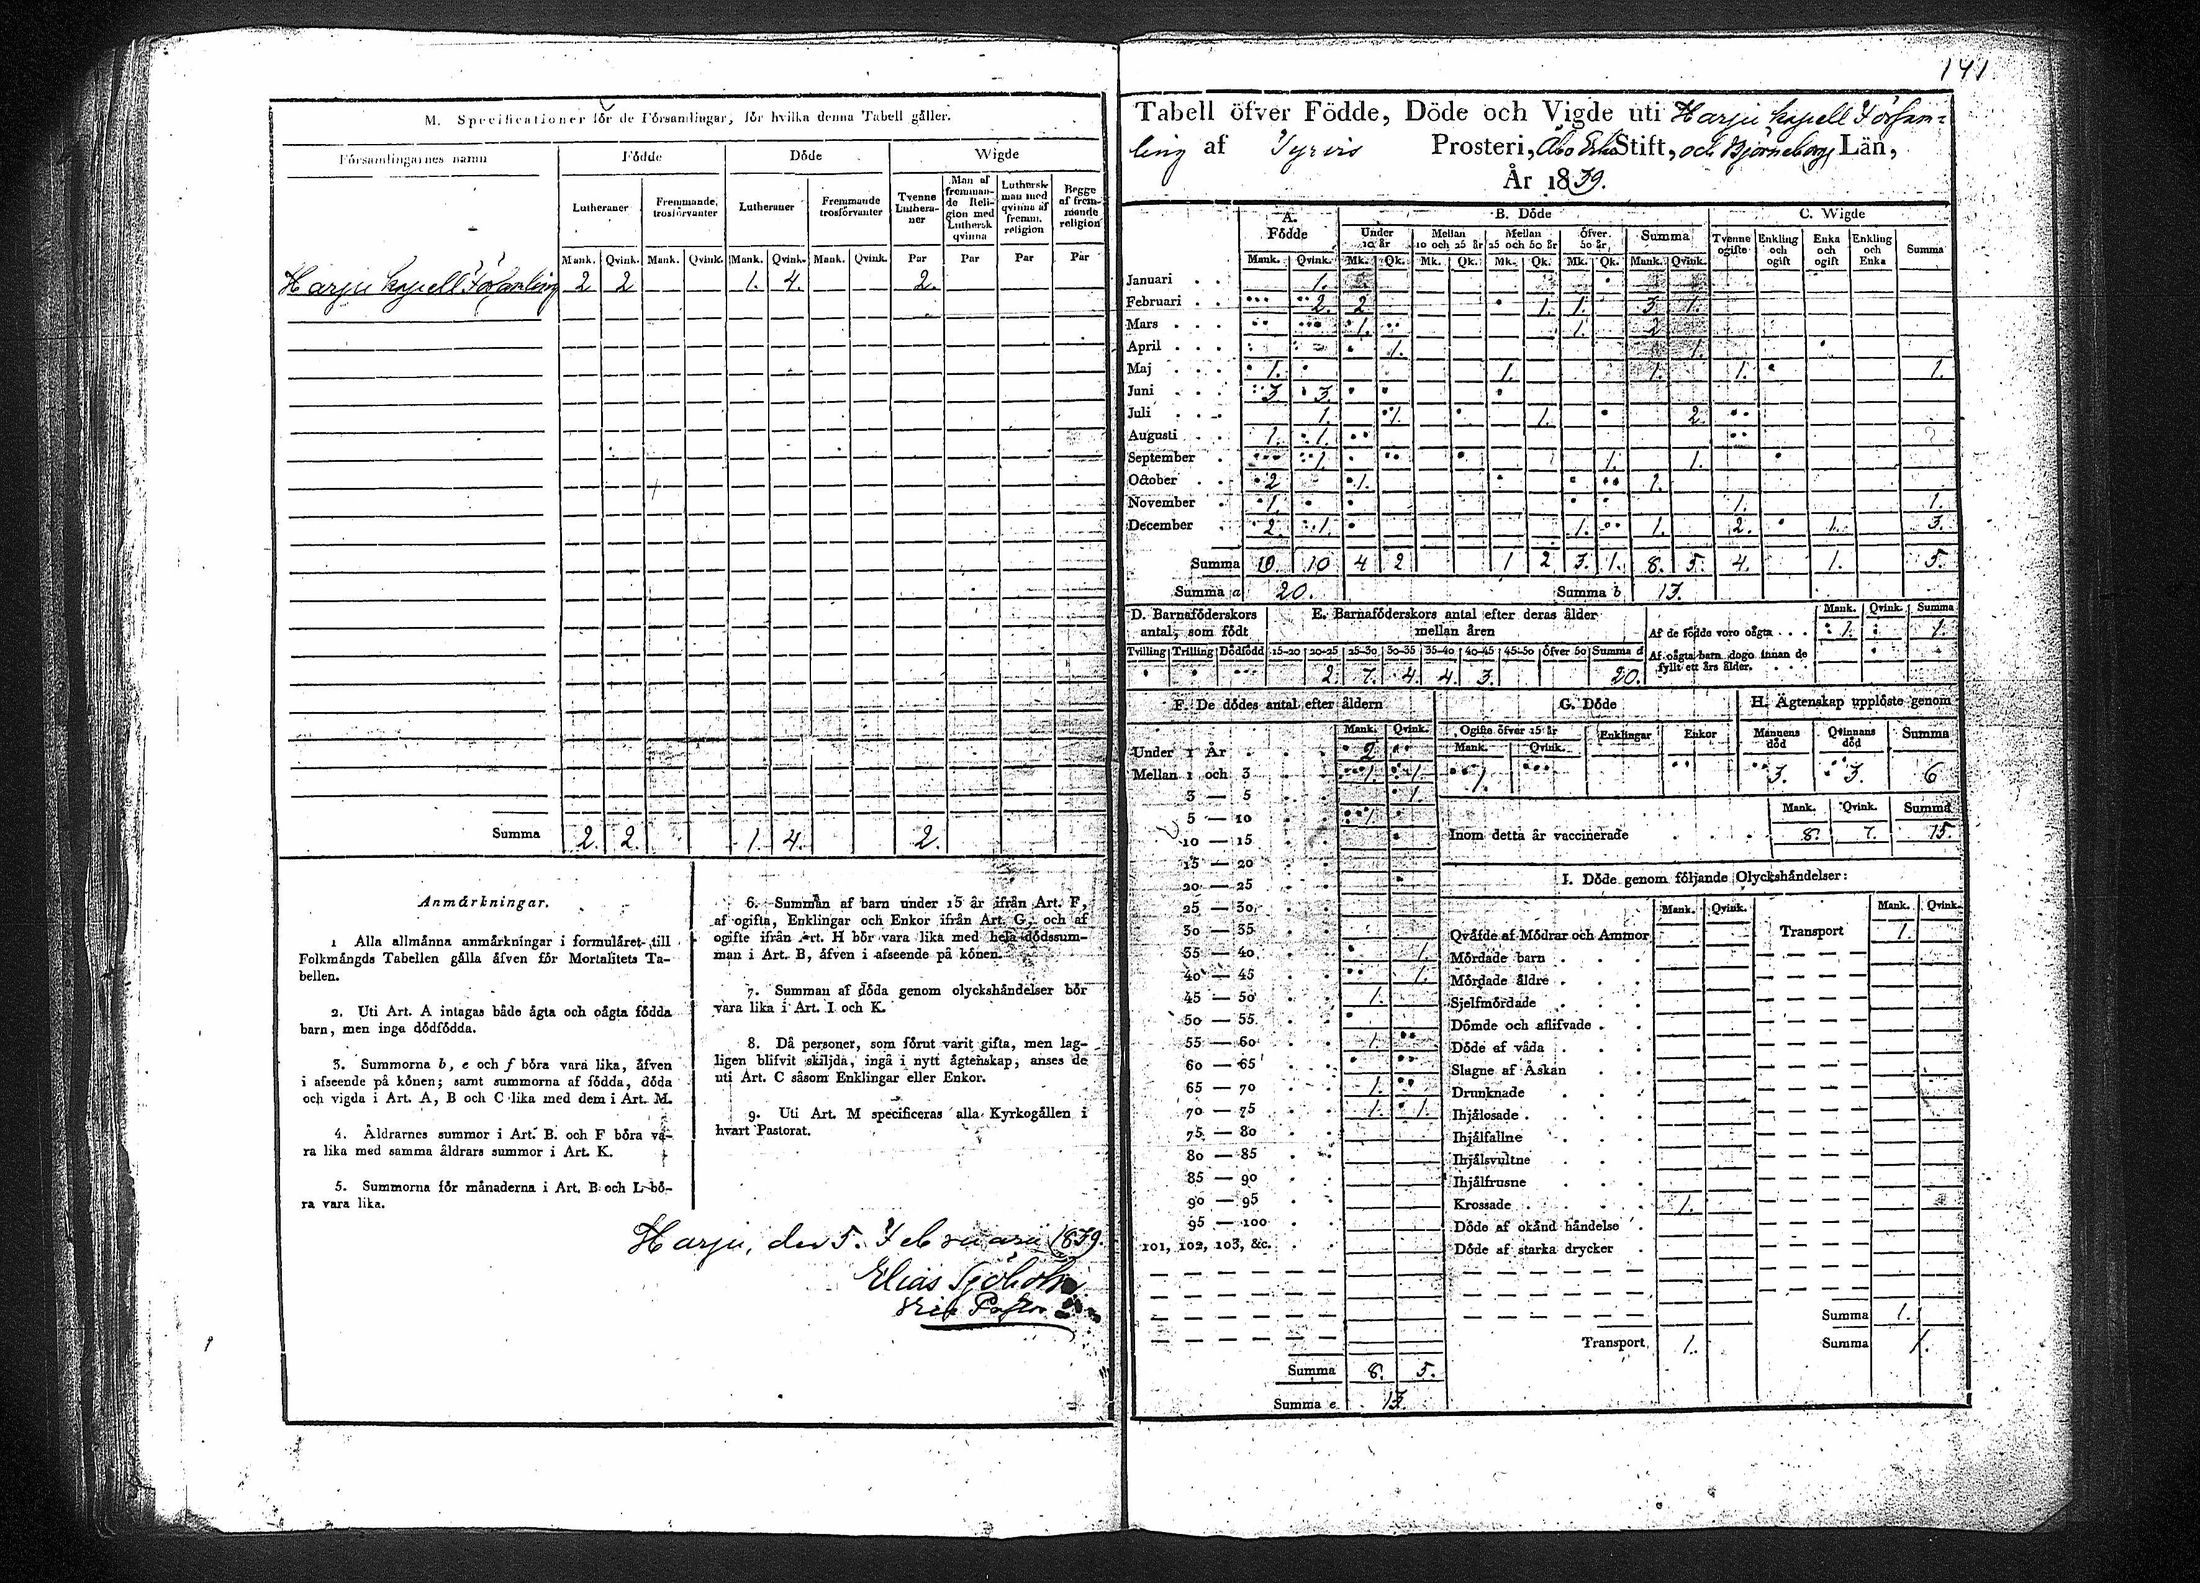 M. Specificationer för de Församlingar, för hvilka denna Tabell gäller.
Församlingarnes namn Födde Döde Wigde
Lutheraner Fremmande trosförvanter Lutheraner Fremmande trosförvanter Tvenne Lutheraner Man af fremmande Religion med Luthersk qvinna Luthersk man med qvinna af fremm. religion Begge af fremmande religion
Mank. Qvink. Mank. Qvink. Mank. Qvink. Mank. Qvink. Par Par Par Par
Harju kapell Församling 2 2 1. 4. 2.
Summa 2. 2. 1. 4. 2.
Anmärkningar.
1 Alla allmänna anmärkningar i formuläret till
Folkmängds Tabellen gälla äfven för Mortalitets Ta-
bellen.
2. Uti Art. A intagas både ägta och oägta födda
barn, men inga dödfödda.
3. Summorna b, e och f böra vara lika, äfven
i afseende på könen; samt summorna af födda, döda
och vigda i Art. A, B och C lika med dem i Art. M.
4. Åldrarnes summor i Art. B. och F böra va-
ra lika med samma åldrars summor i Art. K.
5. Summorna för månaderna i Art. B och L bö-
ra vara lika.
6. Summan af barn under 15 år ifrån Art. F,
af ogifta, Enklingar och Enkor ifrån Art. G, och af
ogifte ifrån Art. H bör vara lika med hela dödssum-
man i Art. B, äfven i afseende på könen.
7. Summan af döda genom olyckshändelser bör
vara lika i Art. I och K.
8. Då personer, som förut varit gifta, men lag-
ligen blifvit skiljda, ingå i nytt ägtenskap, anses de
uti Art. C såsom Enklingar eller Enkor.
9. Uti Art. M specificeras alla Kyrkogällen i
hvart Pastorat.
Harju, den 5. Februarii 1839.
Elias Sjöholm
141
Tabell öfver Födde, Döde och Vigde uti Harju kapell Försam-
ling af Tyrvis Prosteri, Åbo Erke Stift, och Björneborgs Län,
År 1839.
A. Födde B. Döde C. Wigde
Under 10 år Mellan 10 och 25 år Mellan 25 och 50 år Öfver 50 år Summa Tvenne ogifte Enkling och ogift Enka och ogift Enkling och Enka Summa
Mank. Qvink. Mk. Qk. Mk. Qk. Mk. Qk. Mk. Qk. Mank. Qvink.
Januari 1.
Februari 2. 2 1. 1. 3 1.
Mars 1. 1. 2
April 1. 1.
Maj 1. 1. 1. 1. 1.
Juni 3 3.
Juli 1. 1. 1. 2.
Augusti 1. 1.
September 1. 1. 1.
October 2 1. 1.
November 1. 1. 1.
December 2. 1. 1. 1. 2. 1. 3.
Summa 10. 10 4 2 1 2 3. 1. 8. 5. 4. 1. 5.
Summa a 20. Summa b 13.
D. Barnaföderskors antal, som födt
E. Barnaföderskors antal efter deras ålder mellan åren
Mank. Qvink. Summa
Af de födde voro oägta 1. 1.
Af oägta barn dogo innan de fyllt ett års ålder.
Tvilling Trilling Dödfödd 15-20 20-25 25-30 30-35 35-40 40-45 45-50 Öfver 50 Summa d
2. 7. 4. 4. 3. 20.
F. De dödes antal efter åldern
Mank. Qvink.
Under 1 År 2
Mellan 1 och 3 1. 1
3 — 5 1.
5 — 10 1
10 — 15
15 — 20
20 — 25
25 — 30
30 — 35
35 — 40 1.
40 — 45 1.
45 — 50 1.
50 — 55
55 — 60 1.
60 — 65
65 — 70 1.
70 — 75 1. 1.
75 — 80
80 — 85
85 — 90
90 — 95
95 — 100
101, 102, 103, &c.
Summa 8. 5.
Summa e 13.
G. Döde
Ogifte öfver 15 år Enklingar Enkor
Mank. Qvink.
1.
H. Ägtenskap upplöste genom
Mannens död Qvinnans död Summa
3. 3. 6
Mank. Qvink. Summa
Inom detta år vaccinerade 8. 7. 15
I. Döde genom följande Olyckshändelser:
Mank. Qvink. Mank. Qvink.
Qväfde af Mödrar och Ammor Transport 1.
Mördade barn
Mördade äldre
Sjelfmördade
Dömde och aflifvade
Döde af våda
Slagne af Åskan
Drunknade
Ihjälosade
Ihjälfallne
Ihjälsvultne
Ihjälfrusne
Krossade 1.
Döde af okänd händelse
Döde af starka drycker
Summa 1.
Transport 1. Summa 1.